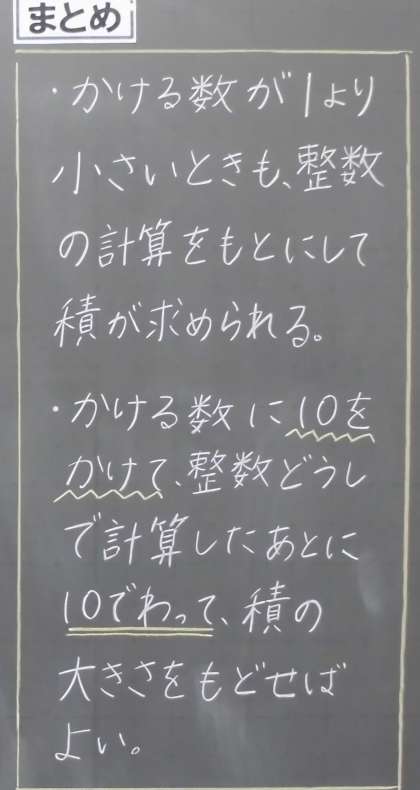 まとめ
・かける数が1より
小さいときも、整数
の計算をもとにして
積が求められる。
・かける数に10を
かけて、整数どうし
で計算したあとに
10でわって、積の
大きさをもどせば
よい。